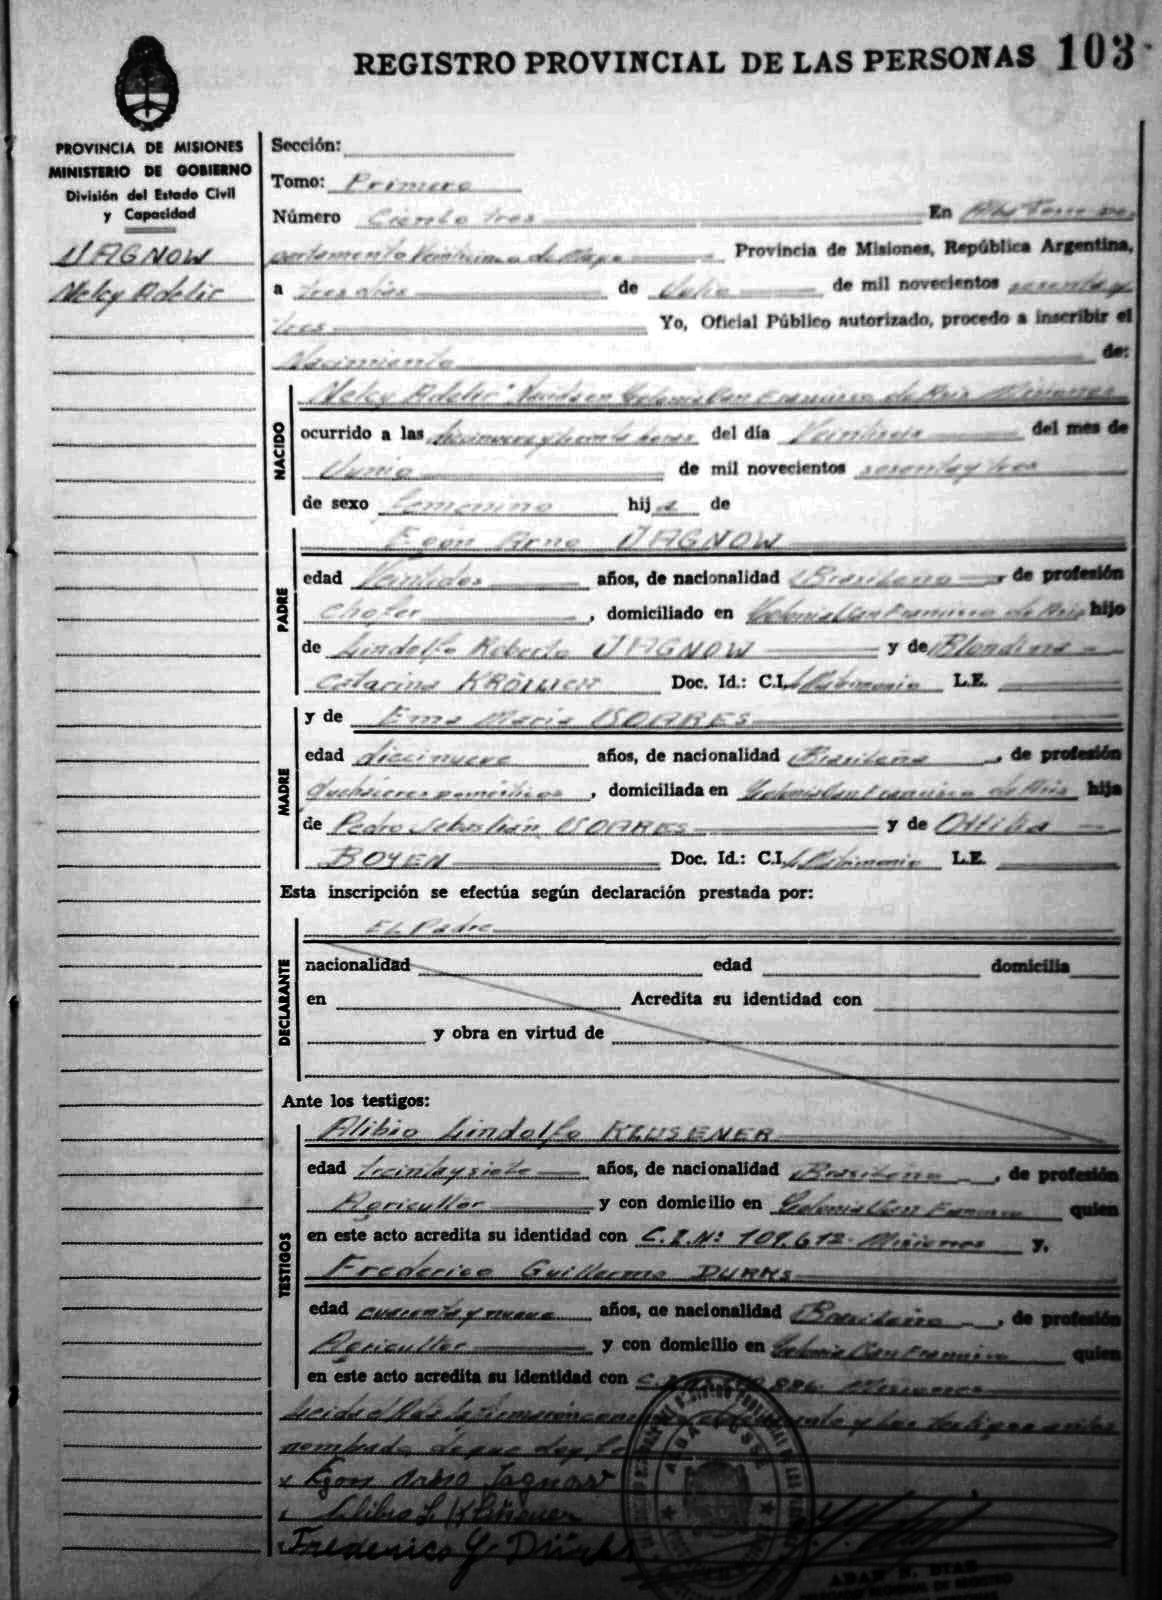 REGISTRO PROVINCIAL DE LAS PERSONAS 103
PROVINCIA DE MISIONES
MINISTERIO DE GOBIERNO
División del Estado Civil
y Capacidad
JAGNOW
Nelcy Adelir
Sección:
Tomo: Primero
Número Ciento tres En Alba Posse De-
partamento Veinticinco de Mayo Provincia de Misiones, República Argentina,
a tres días de Julio de mil novecientos sesenta y
tres Yo, Oficial Público autorizado, procedo a inscribir el
Nacimiento de:
NACIDO
Nelcy Adelir Colonia San Francisco de Asis Misiones
ocurrido a las diecinueve y treinta horas del día Veintiseis del mes de
Junio de mil novecientos sesenta y tres
de sexo femenino hij a de
PADRE
Egon Arno JAGNOW
edad Veintidos años, de nacionalidad Brasileña, de profesión
Chofer, domiciliado en Colonia San Francisco de Asis hijo
de Lindolfo Roberto JAGNOW y de Blondina
Catarina Doc. Id.: C.I. L. Matrimonio L.E.
MADRE
y de Ema Maria SOARES
edad diecinueve años, de nacionalidad Brasileña, de profesión
Quehaceres domésticos, domiciliada en Colonia San Francisco de Asis hija
de Pedro Sebastián SOARES y de Ottilia
BOYEN Doc. Id.: C.I. L. Matrimonio L.E.
Esta inscripción se efectúa según declaración prestada por:
DECLARANTE
El Padre
nacionalidad edad domicilia
en Acredita su identidad con
y obra en virtud de
Ante los testigos:
TESTIGOS
Alibio Lindolfo KLUSENER
edad treinta y siete años, de nacionalidad Brasileña, de profesión
Agricultor y con domicilio en Colonia San Francisco quien
en este acto acredita su identidad con C.I.Nº 109.612 Misiones y,
Frederico Guillermo DURKS
edad cuarenta y nueve años, de nacionalidad Brasileña, de profesión
Agricultor y con domicilio en Colonia San Francisco quien
en este acto acredita su identidad con Misiones
Leida el Acta la firmaron y los testigos antes
nombrado de que doy fe
x Egon Arno Jagnow
Alibio L. Klüsener
Frederico G. Dürks
ALBA POSSE